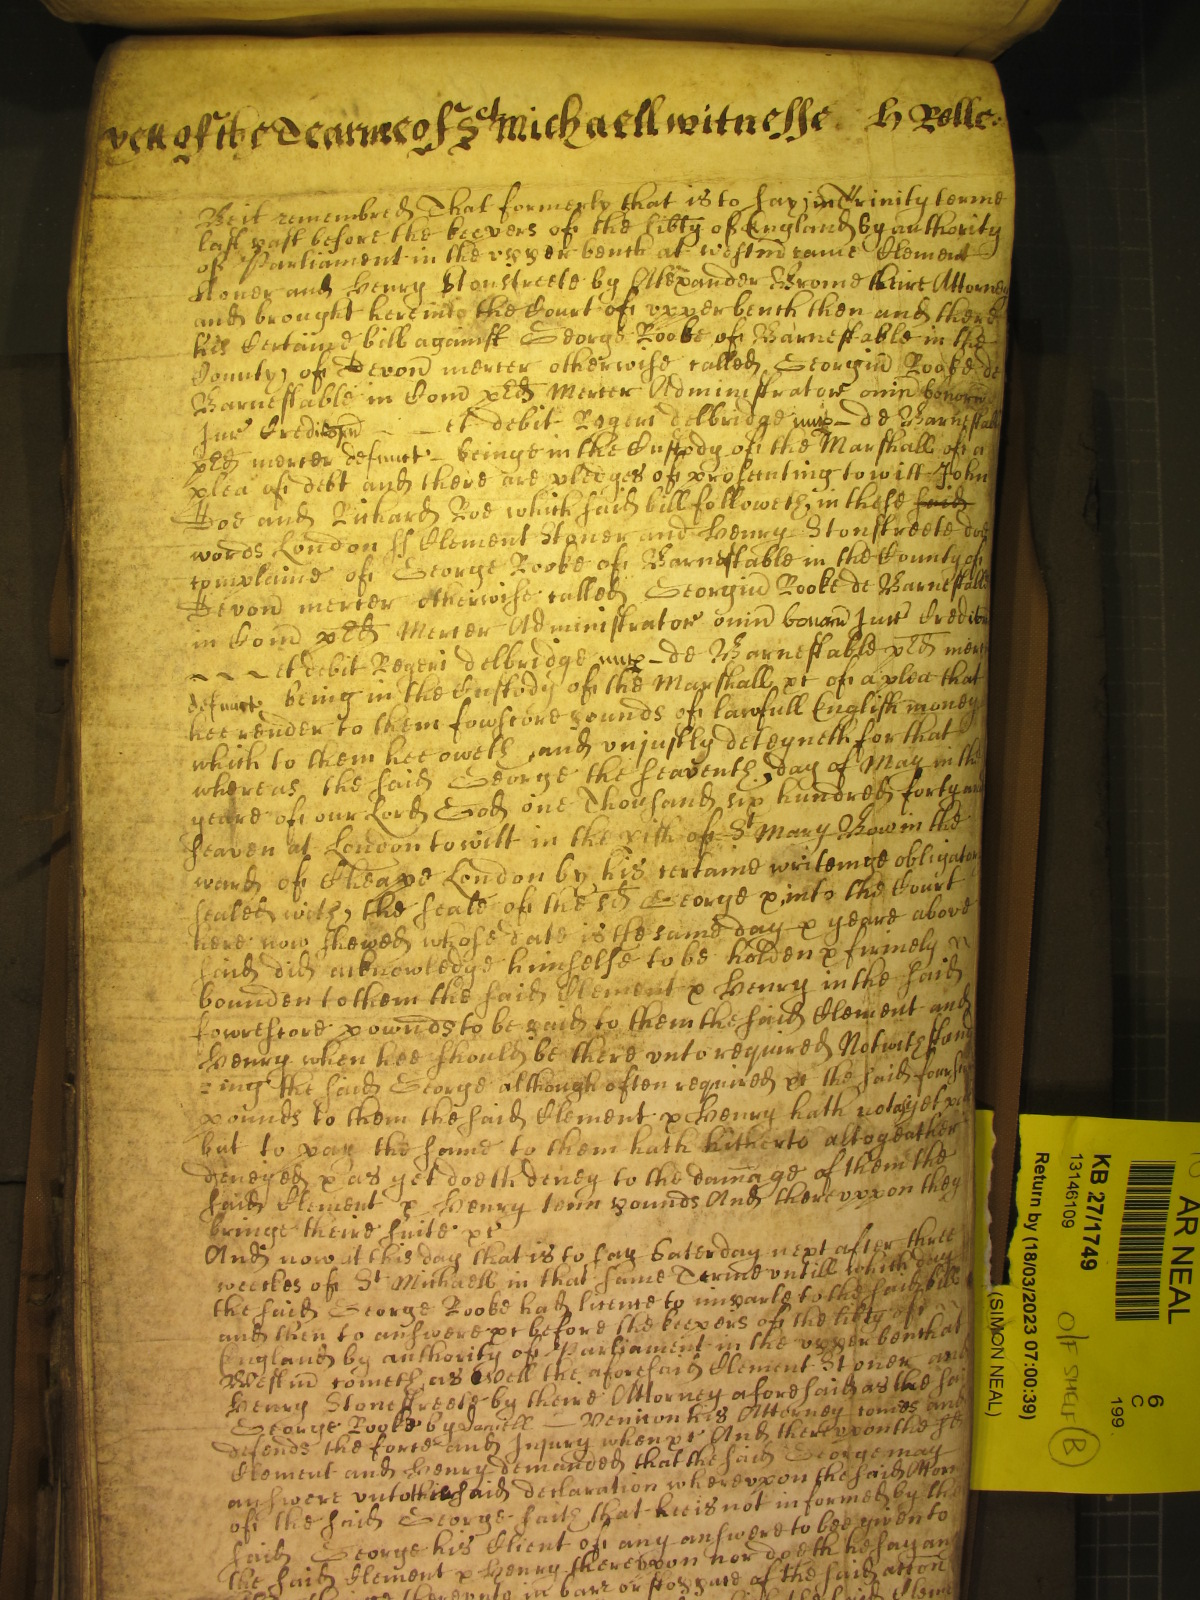 yett of the Tearme of St Michaell witnesse H Rolle:
Be it remembred That formerly that is to say in Trinity terme
last past before the keepers of the libty of England by authority
of Parliament in the vpper bench at Westm came Clement
Stoner and Henry Stonstreete by Alexander Brome theire Attorney
and brought here into the Court of vpper bench then and there
his Certaine bill against George Rooke of Barnestable in the
County of Devon mercer otherwise called Georgiu Rooke de
Barnestable in Com pred Mercer Administrator oniu bonoru
Jur Creditor et debit Rogeri delbridge nup de Barnestable
pred mercer defunct beinge in the Custody of the Marshall of a
plea of debt and there are pledges of prosecuting to witt John
Doe and Richard Roe which said bill followeth in these said
words London ss Clement Stoner and Henry Stonstreete doe
complaine of George Rooke of Barnestable in the County of
Devon mercer otherwise called Georgiu Rooke de Barnestable
in Com pred Mercer Administrator oniu bonoru Jur Creditor
et debit Rogeri delbridge nup de Barnestable pred mercer
defunct being in the Custody of the Marshall pt of a plea that
hee render to them fowrscore pounds of lawfull English money
which to them hee oweth and vnjustly deteyneth for that
whereas the said George the seaventh day of May in the
yeare of our Lord God one Thousand six hundred forty and
seaven at London to witt in the pish of St Mary Bow in the
ward of Cheape London by his certaine writeinge obligatory
sealed with the seale of the sd George & into the Court
here now shewed whose date is the same day & yeare above
said did acknowledge himselfe to be holden & firmely
bounden to them the said Clement & Henry in the said
fowrescore pownds to be paid to them the said Clement and
Henry when hee should be there vnto required Notwithstand
=ing the said George although often required pt the said fourscore
pounds to them the said Clement & Henry hath not as yet paid
but to pay the same to them hath hitherto altogeather
deneyed & as yet doeth deney to the damage of them the
said Clement & Henry tenn pounds And therevppon they
bringe theire suite pt
And now at this day that is to say Saterday next after three
weekes of St Michaell in that same Terme vntill which day
the said George Rooke had licence to imparle to the said bill
and then to answere pt before the keepers of the libty of
England by authority of Parliament in the vpper bench at
Westm cometh as well the aforesaid Clement Stoner and
Henry Stonestreete by theire Attorney aforesaid as the said
George Rooke by Daniell Venison his Attorney comes and
defends the force and Injury when pt And therevpon the sd
Clement and Henry demanded that the said George may
answere vnto their said declaration wherevpon the said Attorn
of the said George saith that hee is not informed by the
said George his Client of any answere to bee given to
the said Clement & Henry therevpon nor doeth he say any
therevnto in barr or stoppage of the said accon
AR NEAL
6
C
199.
KB 27/1749
13146109
O/F SHELF B
Return by (18/03/2023 07:00:39)
(SIMON NEAL)